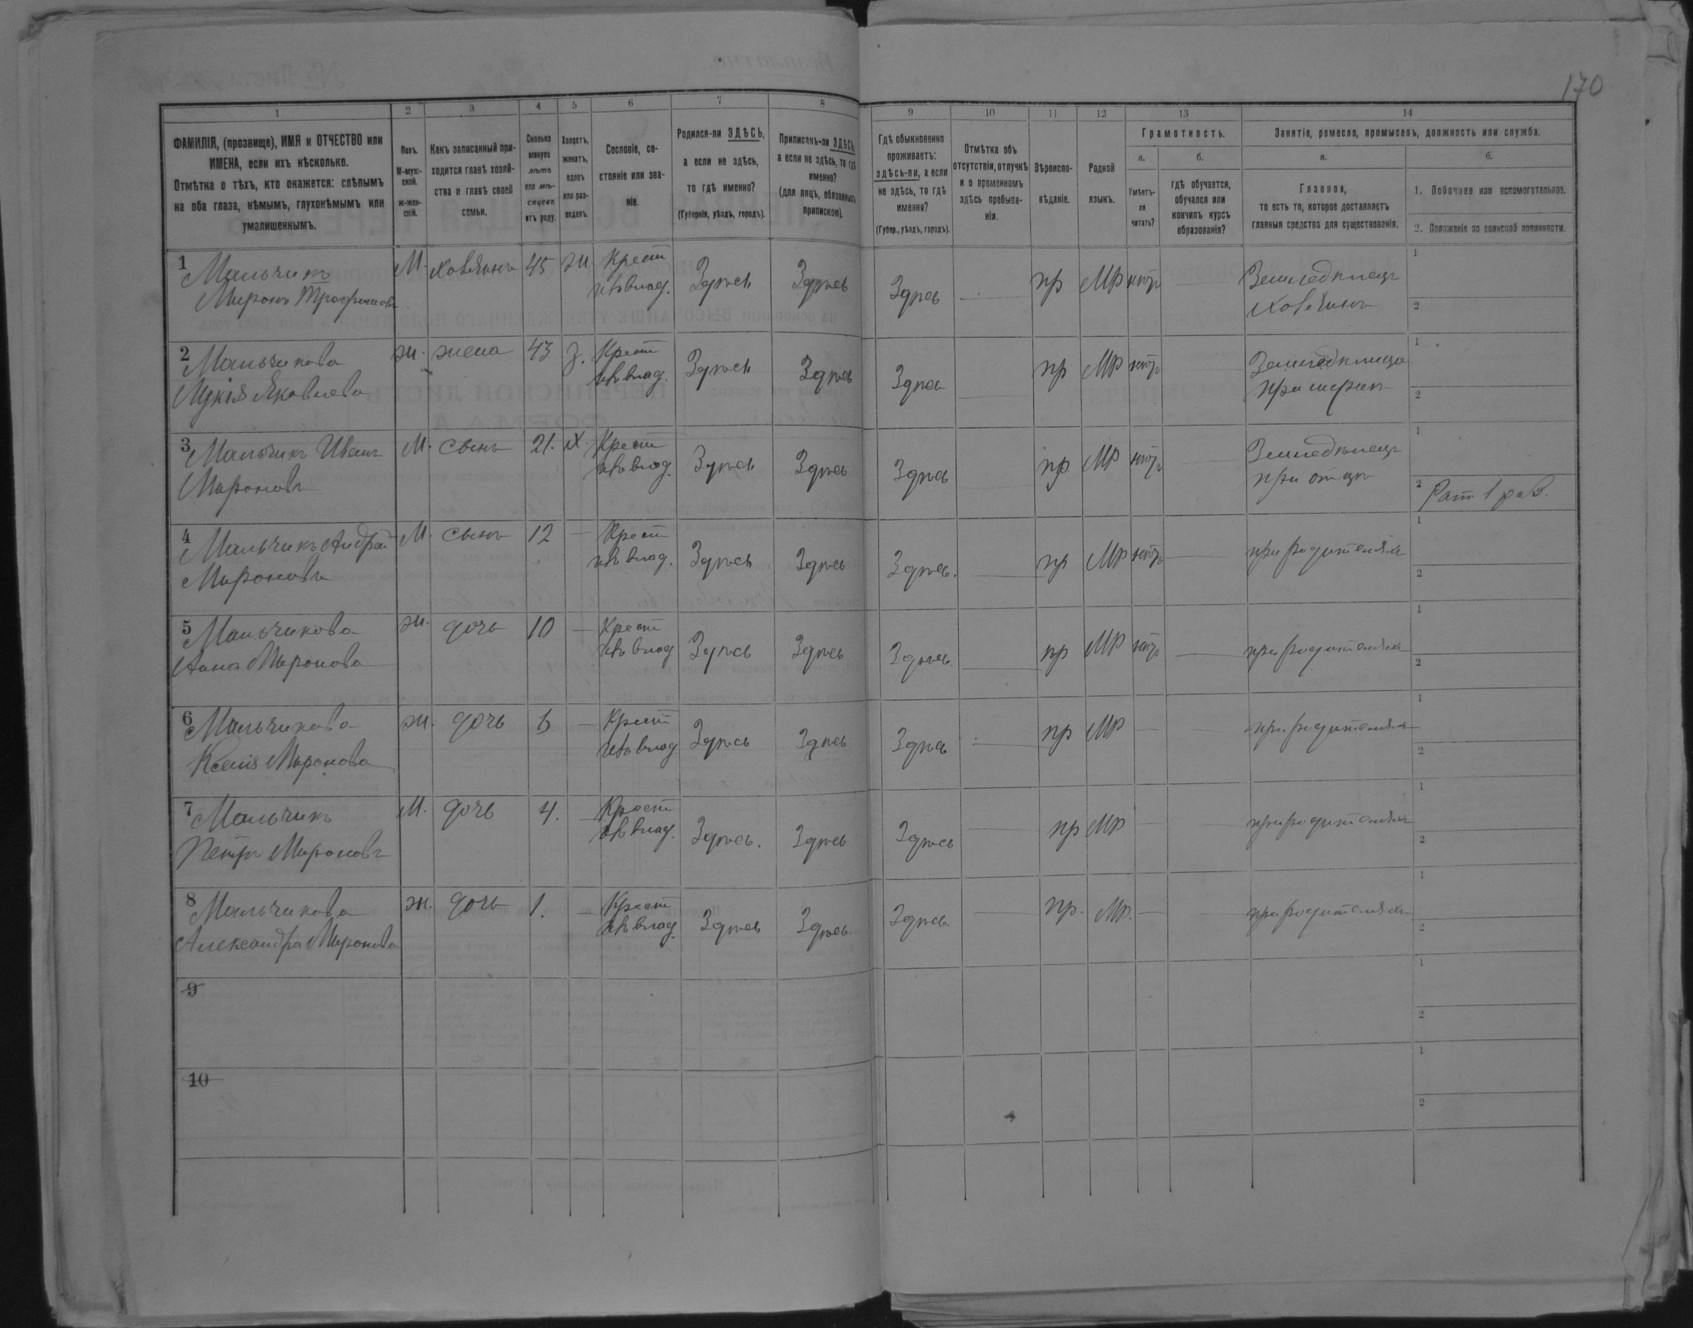 170
1 2 3 4 5 6 7 8 9 10 11 12 13 14
ФАМИЛІЯ, (прозвище), ИМЯ и ОТЧЕСТВО или
ИМЕНА, если ихъ нѣсколько.
Отмѣтка о тѣхъ, кто окажется: слѣпымъ
на оба глаза, нѣмымъ, глухонѣмымъ или
умалишеннымъ.
Полъ.
М-муж-
ской.
ж-жен-
скій.
Какъ записанный при-
ходится главѣ хозяй-
ства и главѣ своей
семьи.
Сколько
минуло
лѣтъ
или мѣ-
сяцевъ
отъ роду.
Холостъ,
женатъ,
вдовъ
или раз-
веденъ.
Сословіе, со-
стояніе или зва-
ніе.
Родился-ли ЗДѢСЬ,
а если не здѣсь,
то гдѣ именно?
(Губернія, уѣздъ, городъ).
Приписанъ-ли ЗДѢСЬ,
а если не здѣсь, то гдѣ
именно?
(для лицъ, обязанныхъ
припиской).
Гдѣ обыкновенно
проживаетъ:
здѣсь-ли, а если
не здѣсь, то гдѣ
именно?
(Губер., уѣздъ, городъ).
Отмѣтка объ
отсутствіи, отлучкѣ
и о временномъ
здѣсь пребыва-
ніи.
Вѣроиспо-
вѣданіе.
Родной
языкъ.
Грамотность.
а.
Умѣетъ-
ли
читать?
б.
гдѣ обучается,
обучался или
кончилъ курсъ
образованія?
Занятіе, ремесло, промыселъ, должность или служба.
а.
Главное,
то есть то, которое доставляетъ
главныя средства для существованія.
б.
1. Побочное или вспомогательное.
2. Положеніе по воинской повинности.
1 Мальчикъ М. хозяинъ 45 ж. Крест Здѣсь Здѣсь Здѣсь — пр МР нѣтъ — Земледѣлецъ 1
Миронъ Трофимовъ изъ влад. хозяинъ 2
2 Мальчикова ж. жена 43 з. Крест Здѣсь Здѣсь Здѣсь — пр МР нѣтъ — Земледѣлица 1
Яковлева изъ влад. при мужѣ 2
3 Мальчикъ Иванъ М. сынъ 21. х. Крест Здѣсь Здѣсь Здѣсь пр МР нѣтъ — Земледѣлецъ 1
Мироновъ изъ влад. при отцѣ 2 Рат 1 раз.
4 Мальчикъ Андрей М. сынъ 12 — Крест Здѣсь Здѣсь Здѣсь. — пр МР нѣтъ — при родителяхъ 1
Мироновъ изъ влад. 2
5 Мальчикова ж. дочь 10 — Крест Здѣсь Здѣсь Здѣсь — пр МР нѣтъ — при родителяхъ 1
Анна Миронова изъ влад 2
6 Мальчикова ж. дочь — Крест Здѣсь Здѣсь Здѣсь — пр МР — — при родителяхъ 1
Ксенія Миронова изъ влад. 2
7 Мальчикъ М. дочь 4. — Крест Здѣсь. Здѣсь Здѣсь — пр МР — — при родителяхъ 1
Петръ Мироновъ изъ влад. 2
8 Мальчикова ж. дочь 1. — Крест Здѣсь Здѣсь Здѣсь — пр. МР. — — при родителяхъ 1
Александра Миронова изъ влад. 2
9 1
2
10 1
2